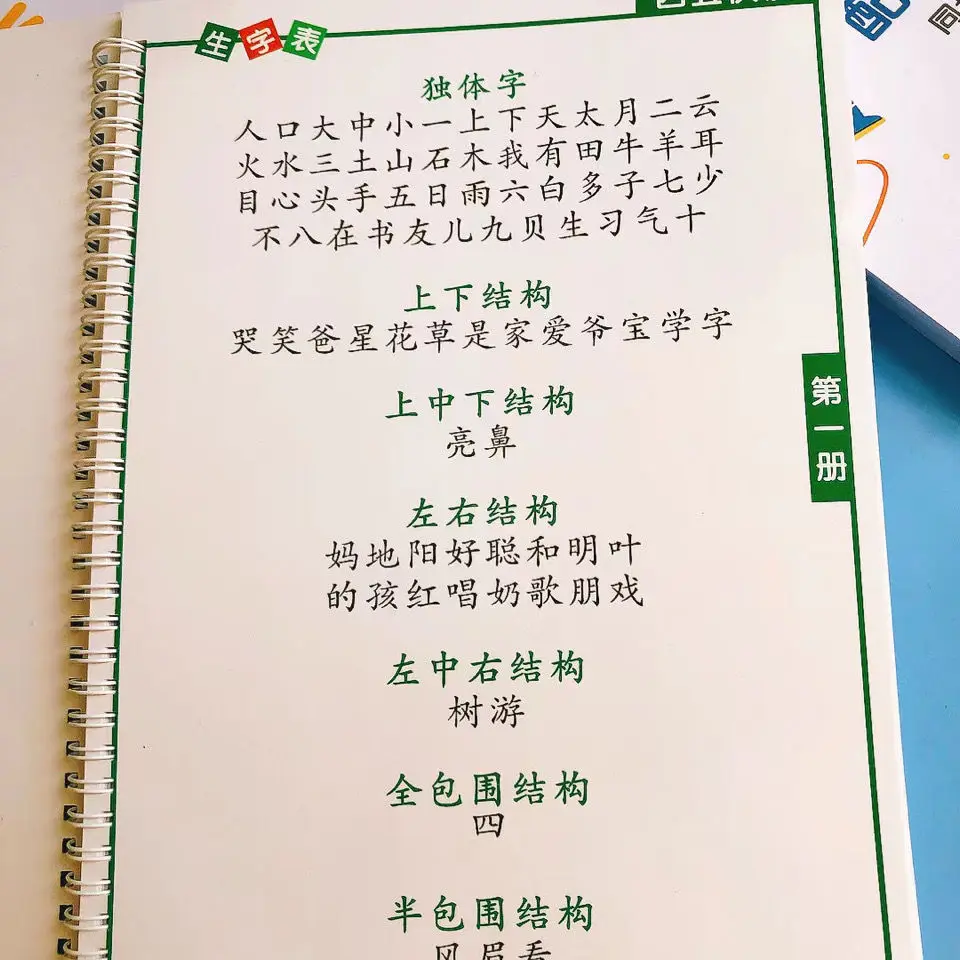 生字表
独体字
人口大中小一上下天太月二云
火水三土山石木我有田牛羊耳
目心头手五日雨六白多子七少
不八在书友儿九贝生习气十
上下结构
哭笑爸星花草是家爱爷宝学字
上中下结构
亮鼻
左右结构
妈地阳好聪和明叶
的孩红唱奶歌朋戏
左中右结构
树游
全包围结构
四
半包围结构
风眉看
第一册